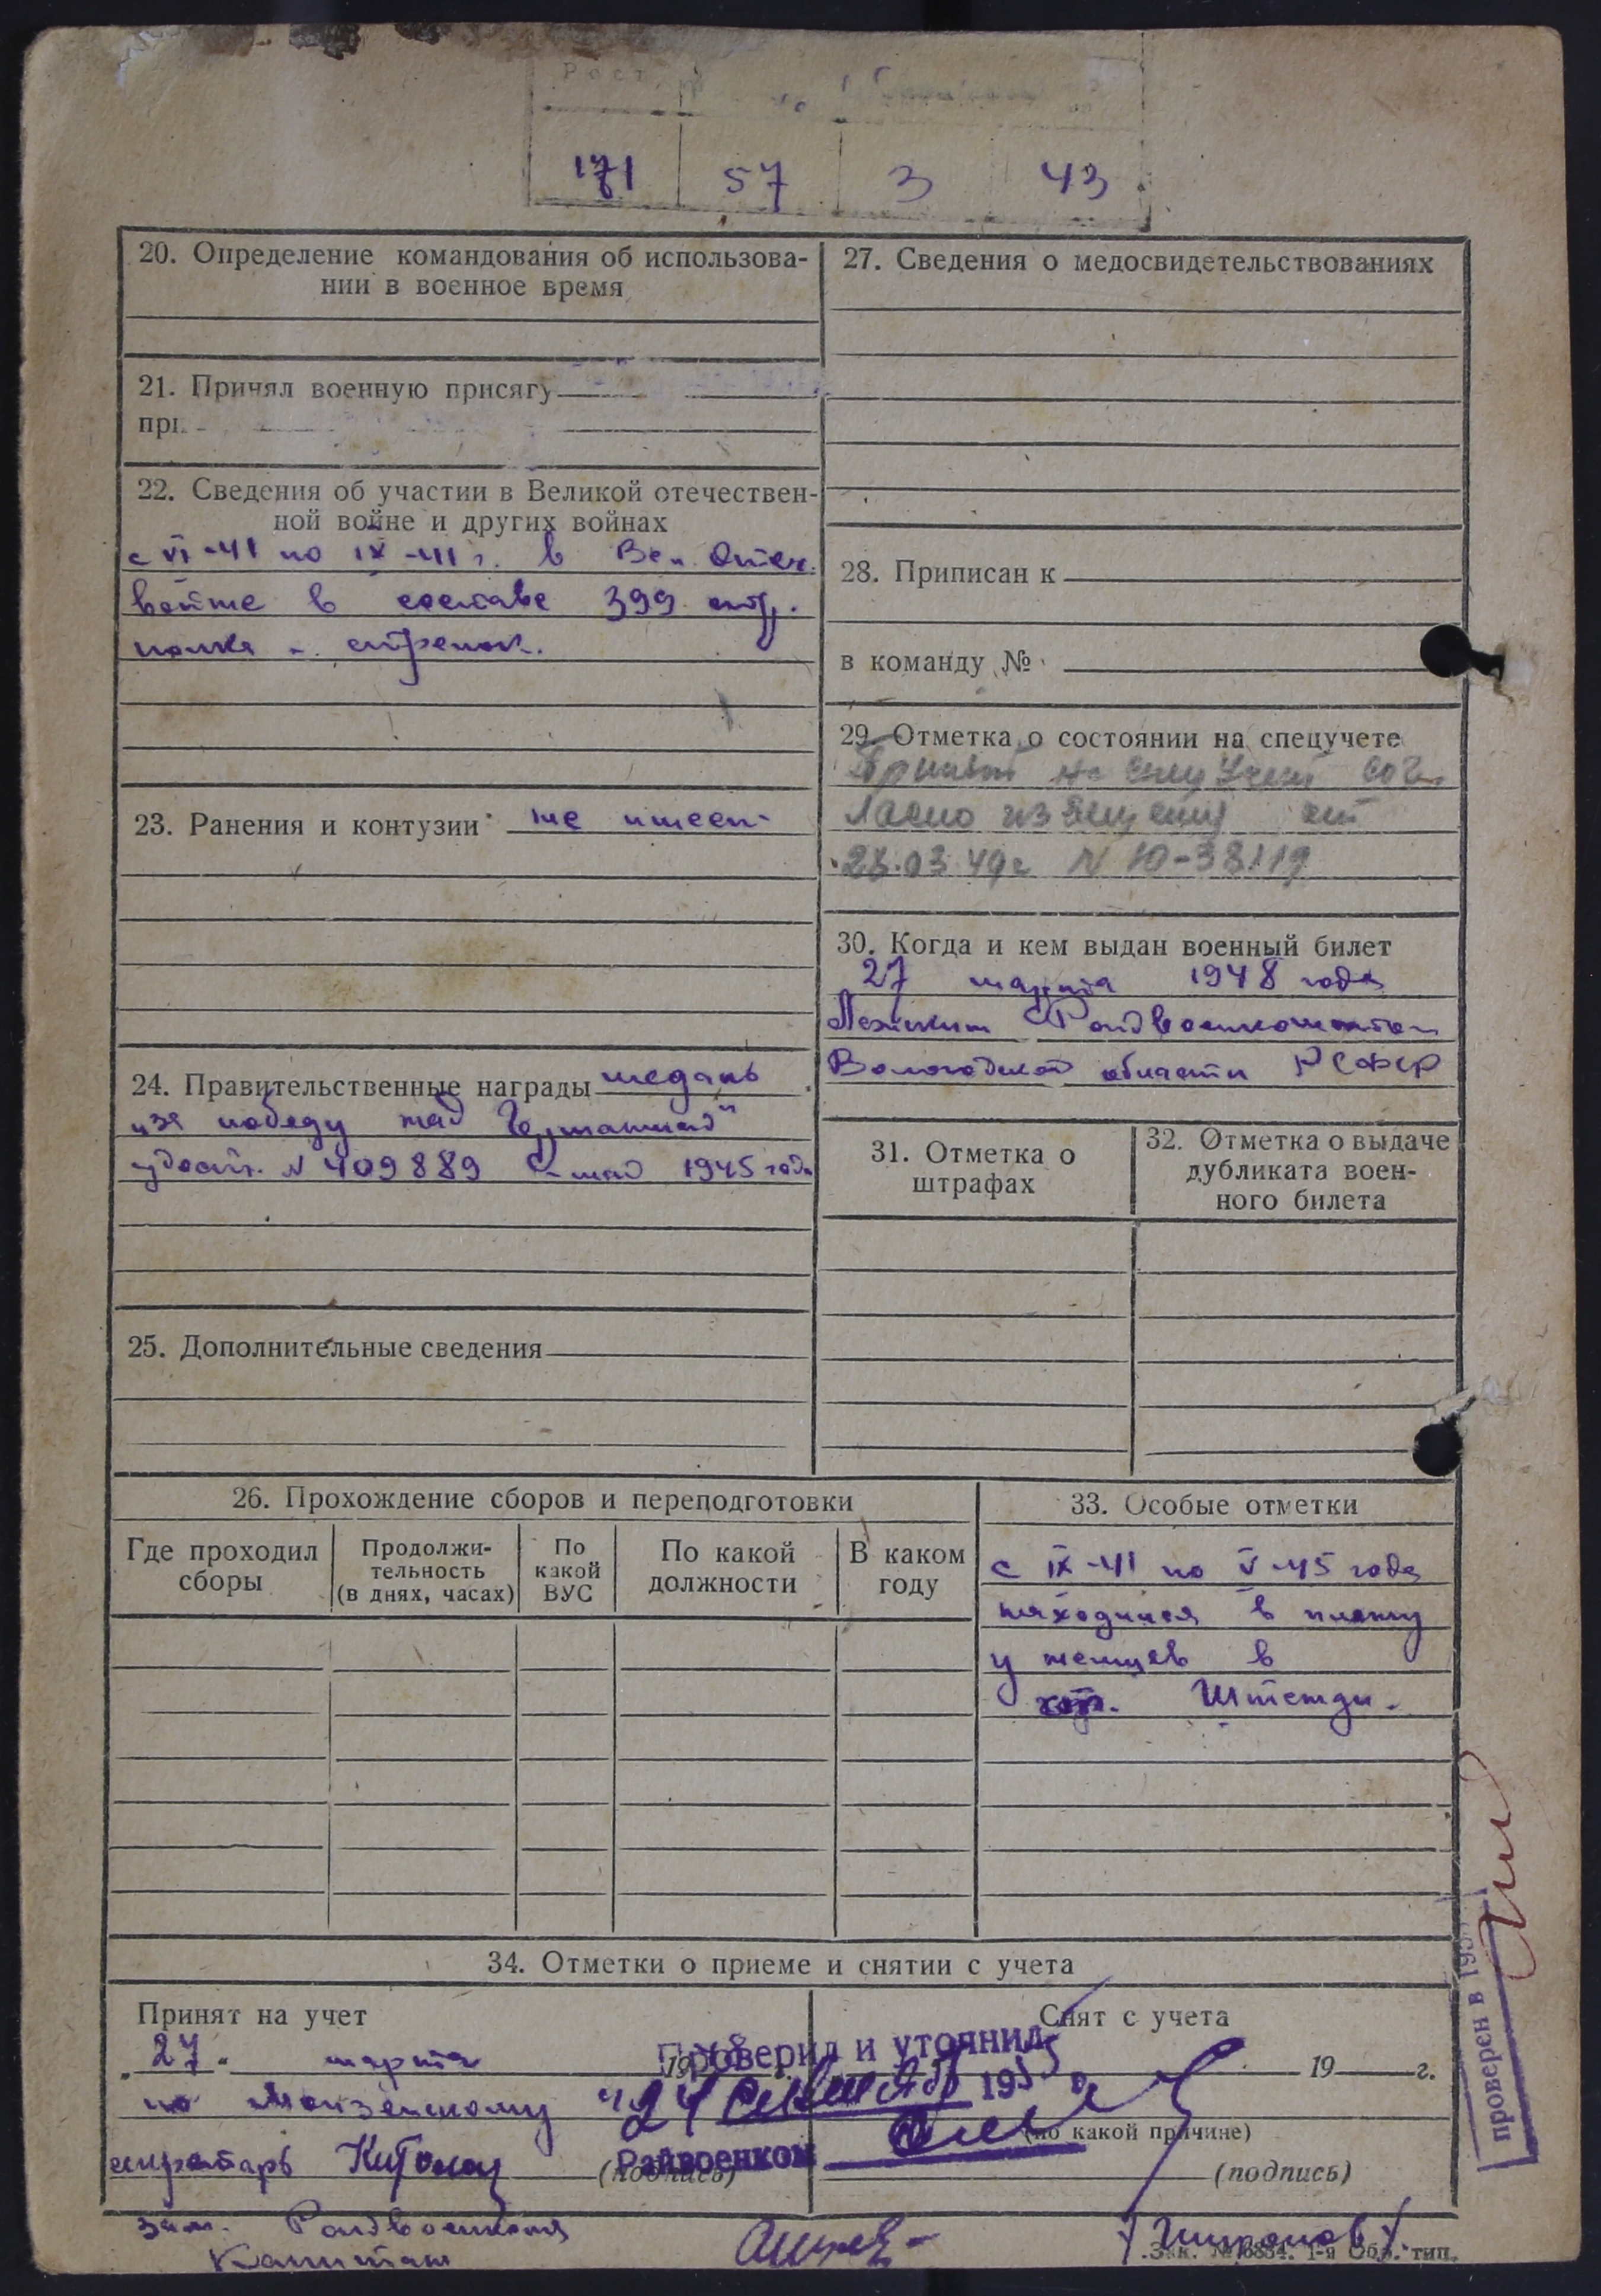 Рост
171 57 3 43
20. Определение командования об использова-
нии в военное время
21. Принял военную присягу
при
22. Сведения об участии в Великой отечествен-
ной войне и других войнах
с VI-41 по IX-41 г. в Вел. Отеч.
войне в составе 399 стр.
полка - стрелок.
23. Ранения и контузии не имеет
24. Правительственные награды медаль
"за победу над Германией"
удост. N 409889 9 мая 1945 года
25. Дополнительные сведения
27. Сведения о медосвидетельствованиях
28. Приписан к
в команду №
29. Отметка о состоянии на спецучете
Принят на спецучет сог-
ласно извещения от
28.03.49г N 10-38119
30. Когда и кем выдан военный билет
27 марта 1948 года
Райвоенкоматом
Вологодской области РСФСР
31. Отметка о
штрафах
32. Отметка о выдаче
дубликата воен-
ного билета
26. Прохождение сборов и переподготовки
Где проходил
сборы
Продолжи-
тельность
(в днях, часах)
По
какой
ВУС
По какой
должности
В каком
году
33. Особые отметки
с IX-41 по V-45 года
находился в плену
у немцев в
гор. Штетди.
34. Отметки о приеме и снятии с учета
Принят на учет
27 марта 1948
по
секретарь
(подпись)
Снят с учета
19 г.
(по какой причине)
(подпись)
Проверил и уточнил
"24 195
Райвоенком
зам. Райвоенкома
Капитан
/Широков/.
Зак. № 6854. 1-я Обр. тип.
проверен в 195